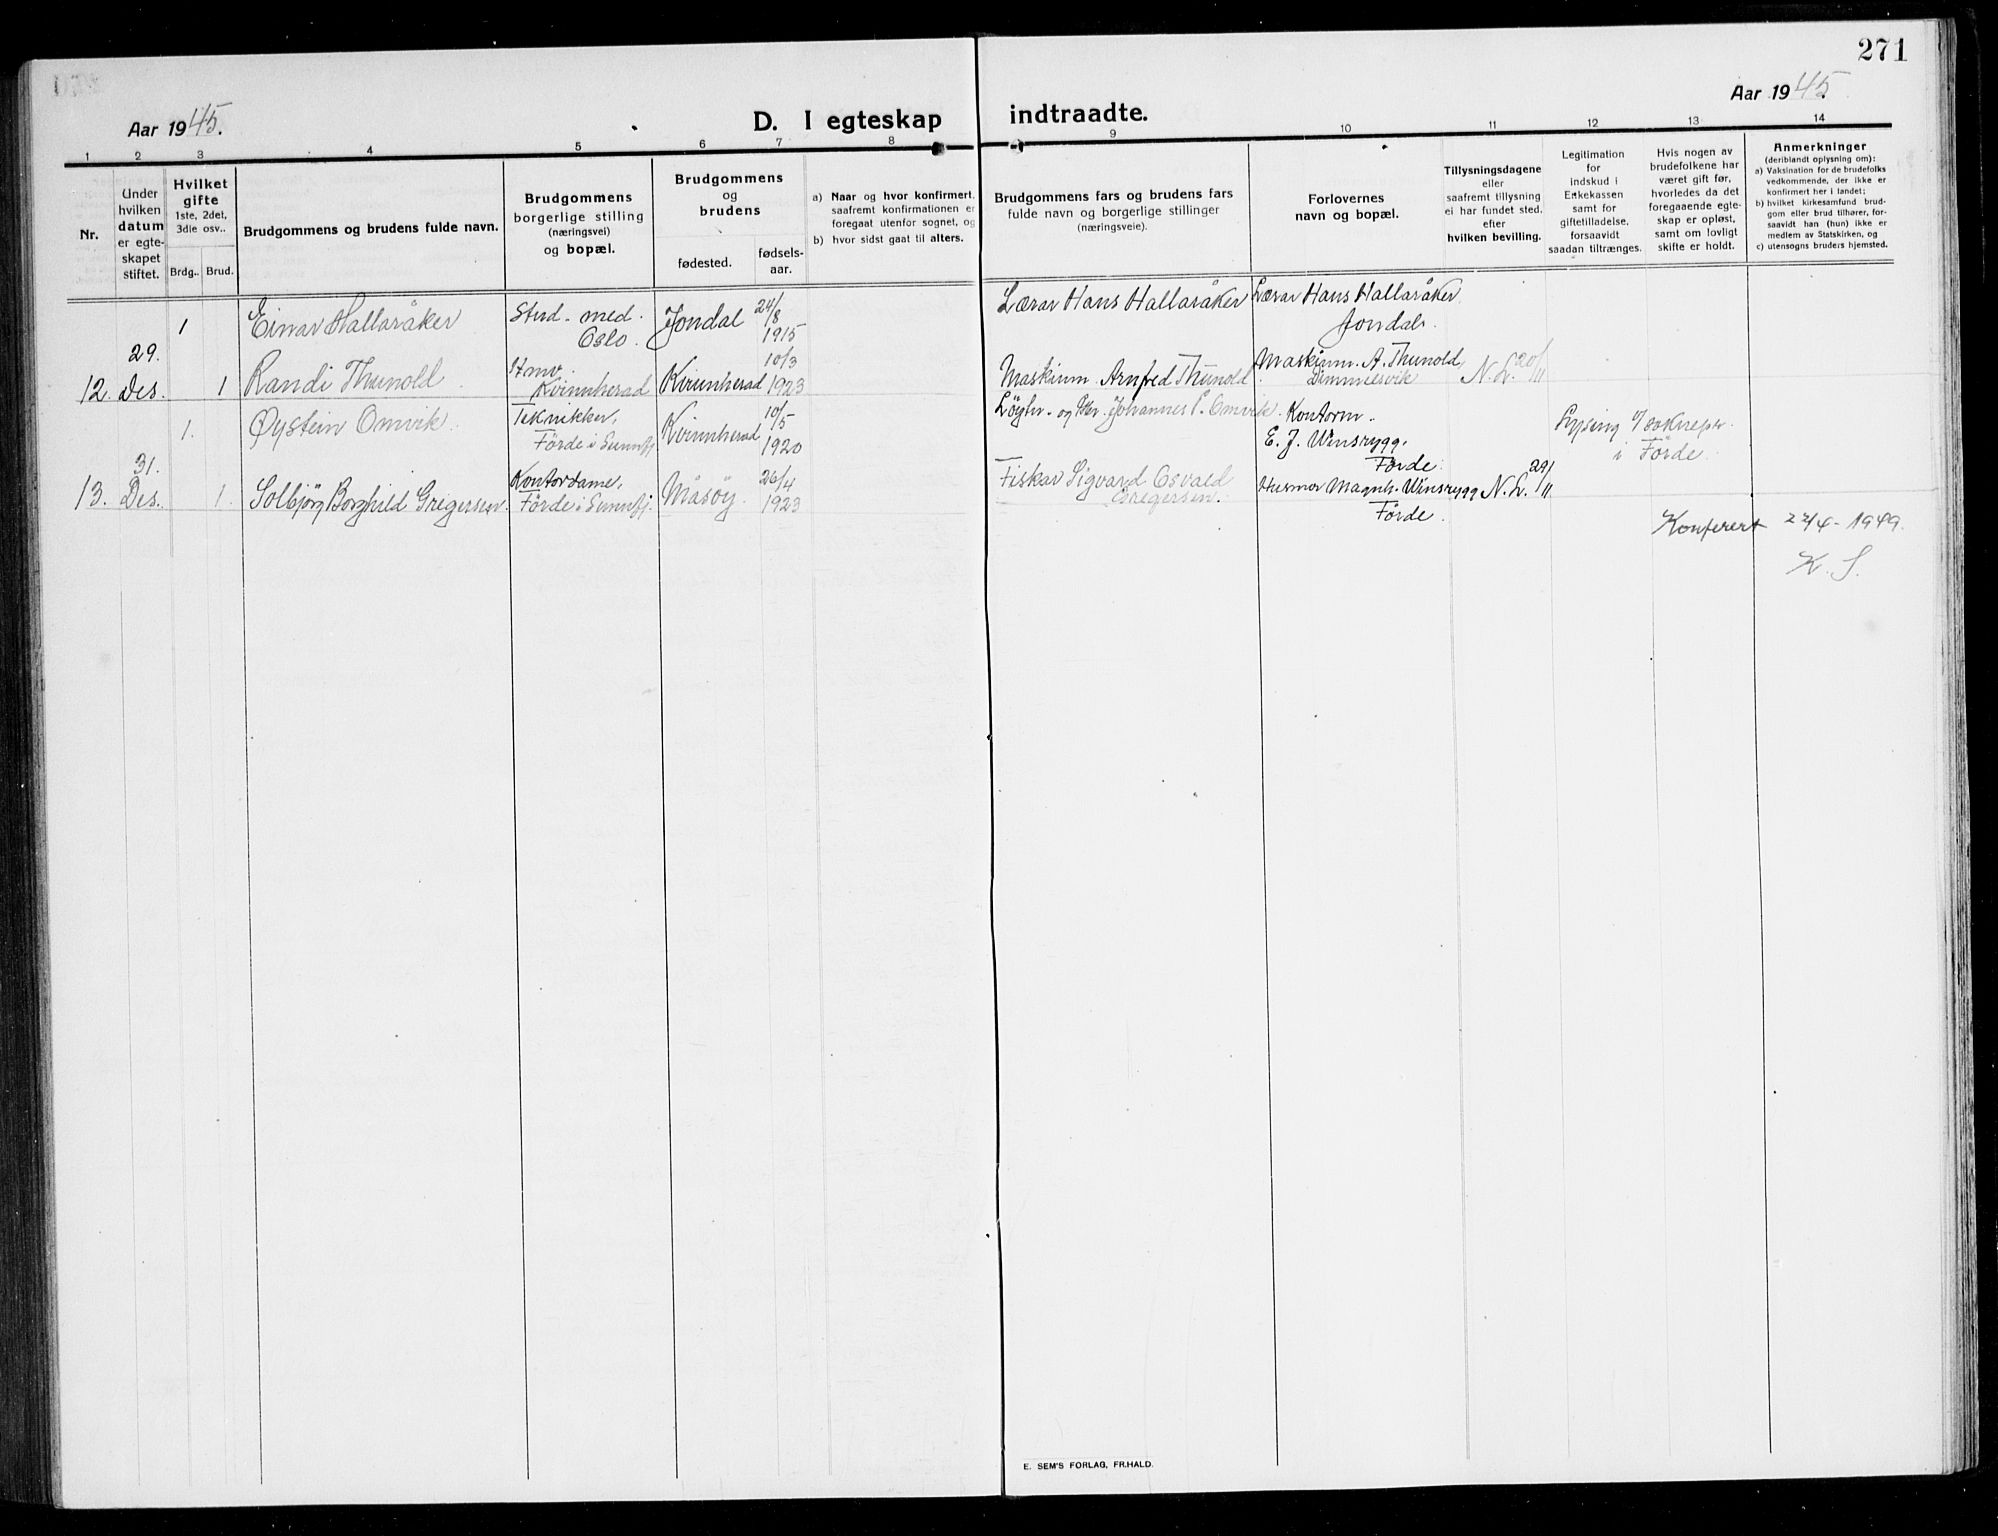 271
Aar 1945.
D. I egteskap indtraadte.
Aar 1945.
1 2 3 4 5 6 7 8 9 10 11 12 13 14
Nr.
Under hvilken datum er egte-skapet stiftet.
Hvilket gifte
1ste, 2det, 3dle osv..
Brdg.. Brud.
Brudgommens og brudens fulde navn.
Brudgommens borgerlige stilling (næringsvei) og bopæl.
Brudgommens og brudens
fødested. fødsels-aar.
a) Naar og hvor konfirmert,
saafremt konfirmationen er
foregaat utenfor sognet, og
b) hvor sidst gaat til alters.
Brudgommens fars og brudens fars
fulde navn og borgerlige stillinger
(næringsveie).
Forlovernes
navn og bopæl.
Tillysningsdagene
eller
saafremt tillysning
ei har fundet sted,
efter
hvilken bevilling.
Legitimation
for
indskud i
Enkekassen
samt for
giftetilladelse,
forsaavidt
saadan tiltrænges.
Hvis nogen av
brudefolkene har
været gift før,
hvorledes da det
foregaaende egte-
skap er opløst,
samt om lovligt
skifte er holdt.
Anmerkninger
(deriblandt oplysning om):
a) Vaksination for de brudefolks
vedkommende, der ikke er
konfirmert her i landet;
b) hvilket kirkesamfund brud-
gom eller brud tilhører, for-
saavidt han (hun) ikke er
medlem av Statskirken, og
c) utensogns bruders hjemsted.
1 Einar Hallaråker Stud. med. Oslo. Jondal 24/8 1915 Lærar Hans Hallaråker Lærar Hans Hallaråker Jondal.
12. 29. Des. 1 Randi Thunold Kvinnherad Kvinnherad 10/3 1923 Maskinm. Arnfred Thunold Maskinm. A. Thunold, Dimmelsvik N. L. 20/11
1. Øystein Omvik. Teknikker, Förde i Sunnfj. Kvinnherad 10/5 1920 Johannes P. Omvik. Kontorm. E. J. Vinsrygg, Förde. Lysing i Förde.
13. 31. Des. 1. Solbjørg Borghild Gregersen. Kontordame, Förde i Sunnfj. Måsöy. 26/4 1923 Fiskar Sigvard Osvald Gregersen. Husmor Magnh. Vinsrygg Förde. N. L. 29/11
Konferert 22/4 - 1949.
K. S.
E. SEM'S FORLAG, FR.HALD.